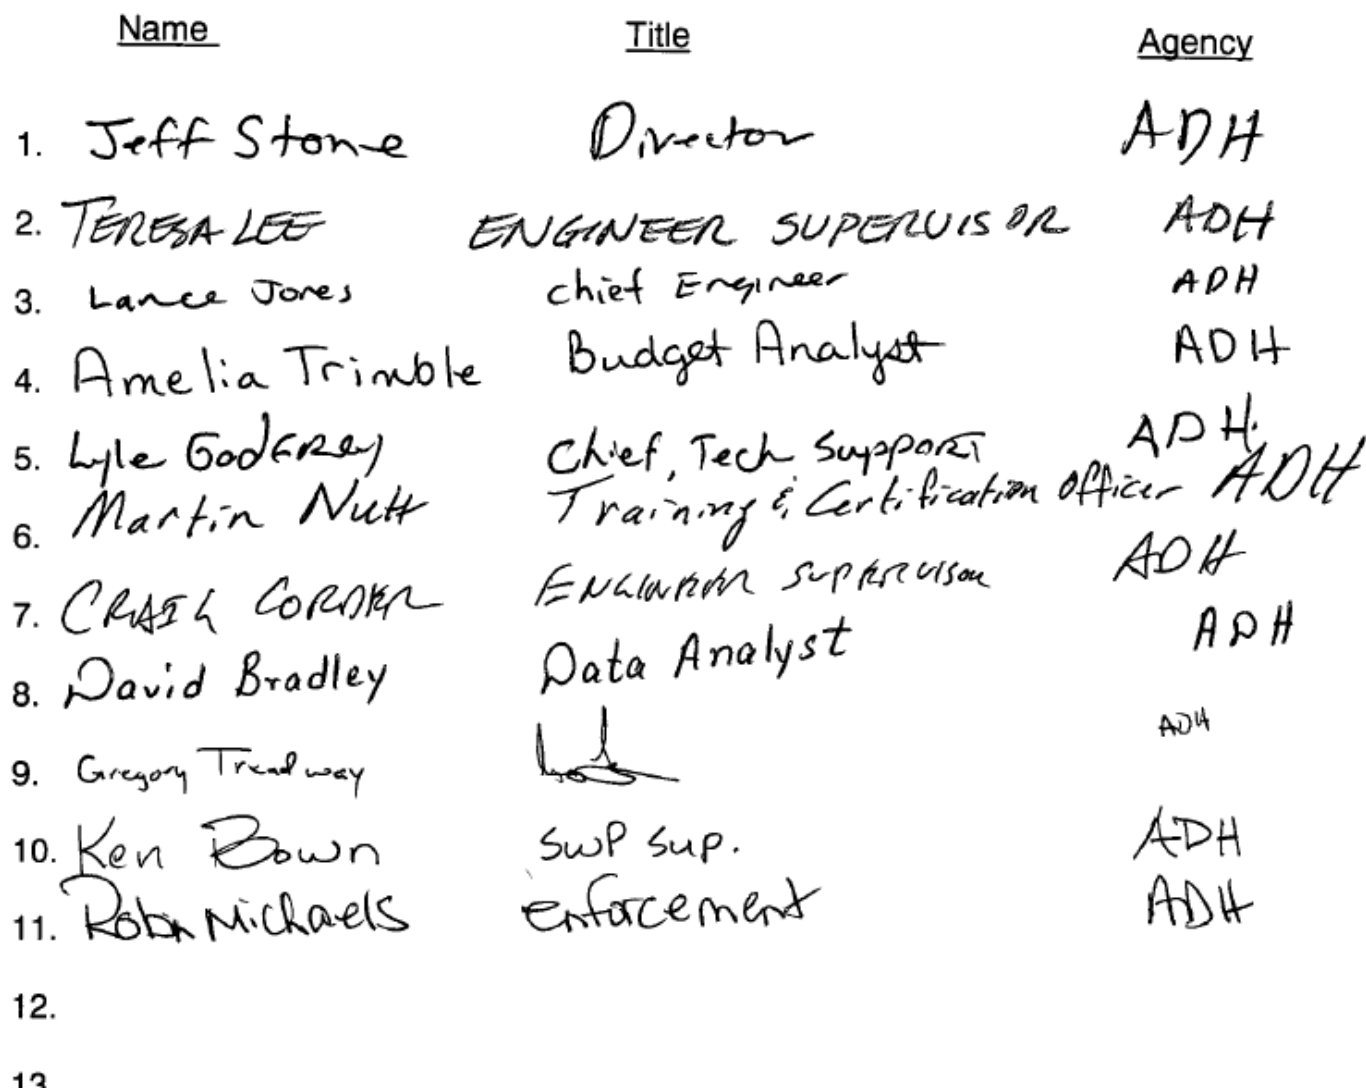 Name Title Agency
1. Jeff Stone Director ADH
2. TERESA LEE ENGINEER SUPERVISOR ADH
3. Lance Jones chief Engineer ADH
4. Amelia Trimble Budget Analyst ADH
5. Lyle Godfrey Chief, Tech Support ADH.
6. Martin Nutt Training & Certification Officer ADH
7. CRAIG CORDER ENGINEER SUPERVISOR ADH
8. David Bradley Data Analyst ADH
9. Gregory Treadway ADH
10. Ken Bown SWP Sup. ADH
11. Robin Michaels enforcement ADH
12.
13